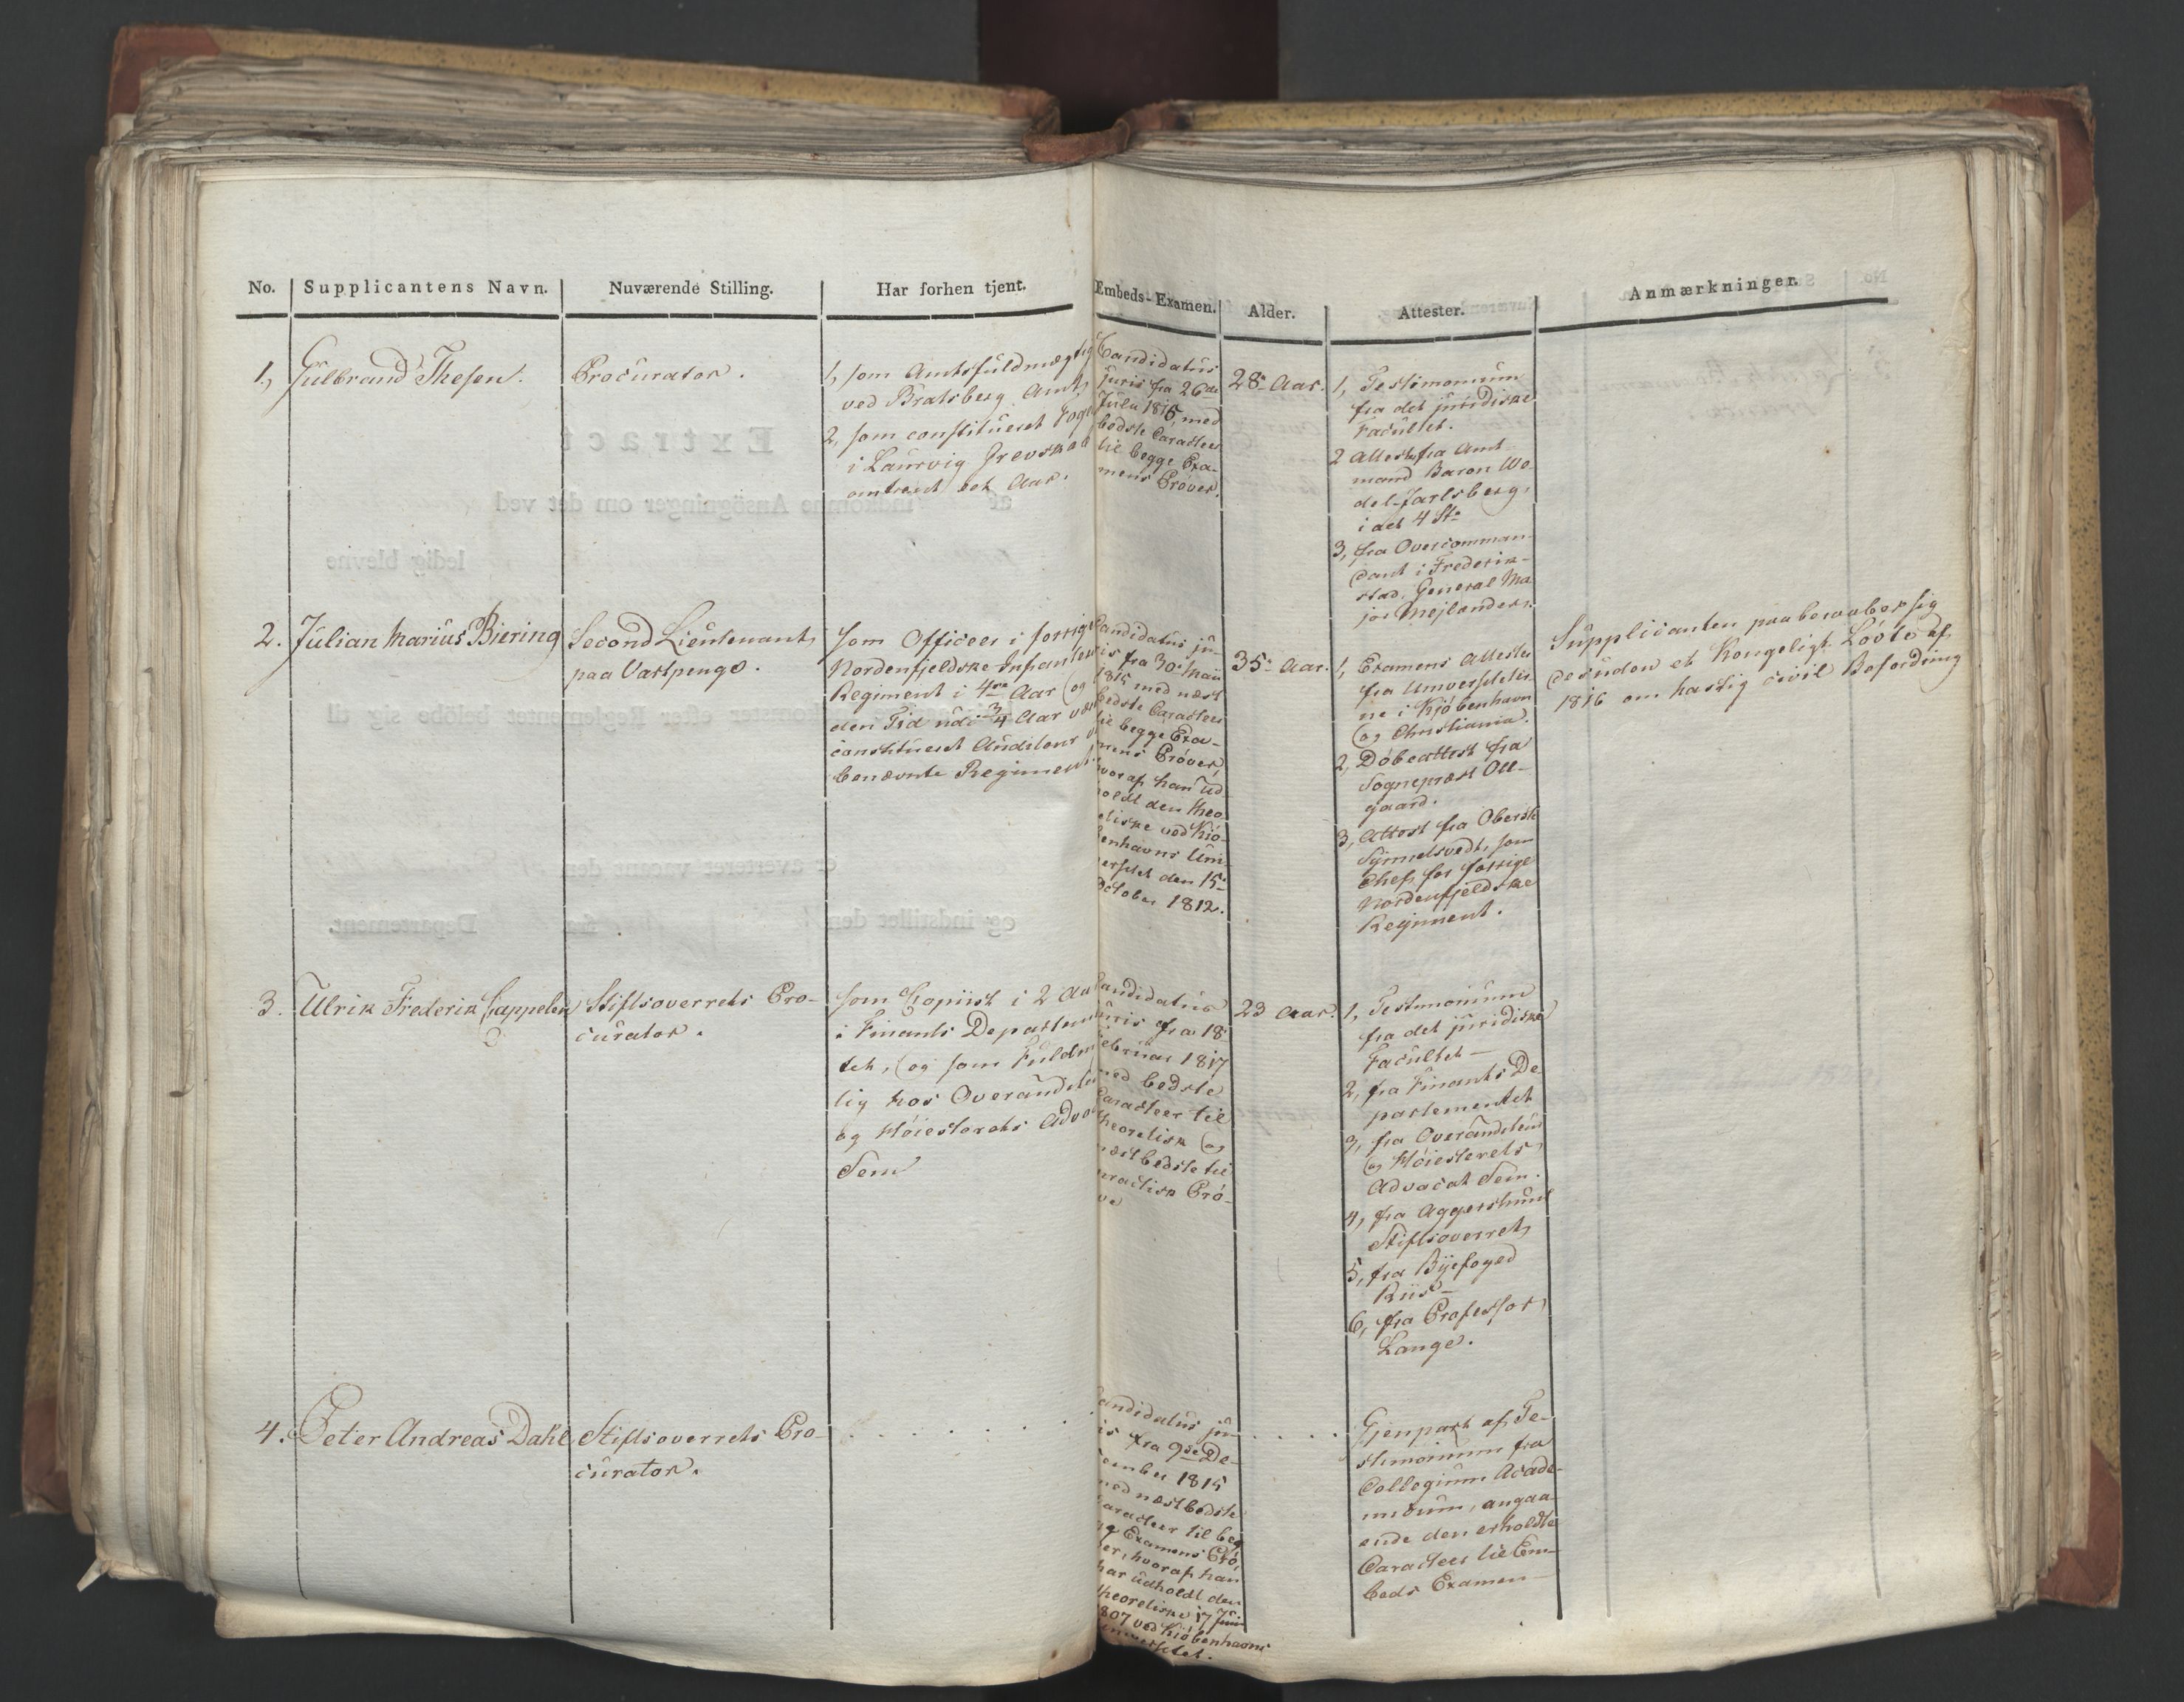 No. Supplicantens Navn. Nuværende Stilling. Har forhen tjent. Embeds-Examen. Alder. Attester. Anmærkninger.
1, Gulbrand Thesen.
Procurator.
1, som Amtsfuldmægtig
ved Bratsberg Amt,
2, som constitueret Foge
i Laurvig Grevskab
omtrent eet Aar.
Candidatus
juris fra 26de
Julii 1815, med
bedste Caracteer
til begge Exa-
mens Prøver.
28 Aar.
1, Testimonium
fra det juridiske
Facultet.
2 Attest fra Amt
mand Baron We-
del-Jarlsberg,
i alt 4 St.
3, fra Overcomman-
dant i Frederik-
stad, General Ma
jor Mejlander.
2. Julian Marius Biering
Second Lieutenant,
paa Vartpenge.
Som Officeer i forrige
Nordenfjeldske Infanterie
Regiment i 4re Aar og
den Tid udi 3/4 Aar være
constitueret Auditeur v
benævnte Regiment.
Candidatus ju-
ris fra 30 Maii
1815 med næst
bedste Caracteer
til begge Exa-
mens Prøver,
hvoraf han ud-
holdt den theo
retiske ved Kiø-
benhavns Uni-
versitet den 15
October 1812.
35 Aar.
1, Examens Attester
fra Universitetер-
ne i Kjøbenhavn
og Christiania.
2, Døbeattest fra
Sognepræst Ott-
gaard.
3, Attest fra Oberste
som
Chef for forrige
Nordenfjeldske
Regiment.
Supplicanten paaberaaber sig
desuden et Kongeligt Løvte af
1816 om hastig civil Befordring
3. Ulrik Frederik Cappelen
Stiftsoverrets Pro-
curator.
Som Copiist i 2 Aar
i Finants Departemen
tet, og som Fuldmæ
tig hos Overauditeur
og Høiesterets Advo
Sem
Candidatus
juris fra 18
Februar 1817
med bedste
Caracteer til
theoretisk og
næstbedste til
practisk Prø-
ve
23 Aar.
1, Testimonium
fra det juridiske
Facultet -
2, fra Finants De-
partementet
3, fra Overauditeur
og Høiesterets
Advocat Sem.
4, fra Aggershuus
Stiftsoverret,
5, fra Byefoged
Riis -
6, fra Professor
Lange.
4. Peter Andreas Dahl
Stiftsoverrets Pro-
curator.
Candidatus ju-
ris fra 9de De-
cember 1815
med næstbedste
Caracteer til beg
ge Examens Prø-
ver, hvoraf han
har udholdt den
theoretiske 17 Juni
1807 ved Kiøbenhavns
Universitet.
Gjenpart af Te-
stimonium fra
Collegium Acade-
micum, angaa-
ende den erholdte
Caracteer til Em-
beds Examen -